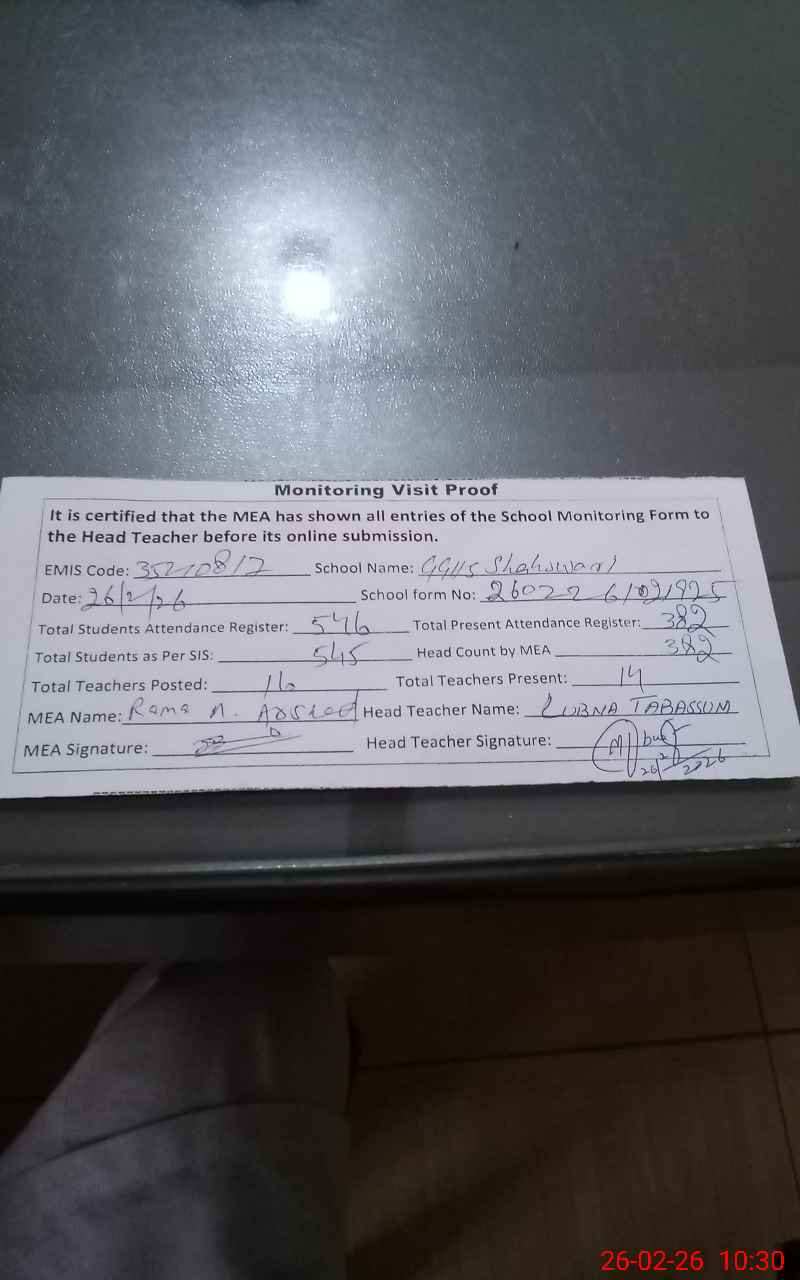 Monitoring Visit Proof
It is certified that the MEA has shown all entries of the School Monitoring Form to
the Head Teacher before its online submission.
EMIS Code: 35210812 School Name: GGHS
Date: 26/2/26 School form No: 26022 6/02/925
Total Students Attendance Register: 546 Total Present Attendance Register: 382
Total Students as Per SIS: 545 Head Count by MEA 382
Total Teachers Posted: 16 Total Teachers Present: 14
MEA Name: Rana M. Head Teacher Name: LUBNA TABASSUM
MEA Signature: Head Teacher Signature:
26/2/2026
26-02-26 10:30